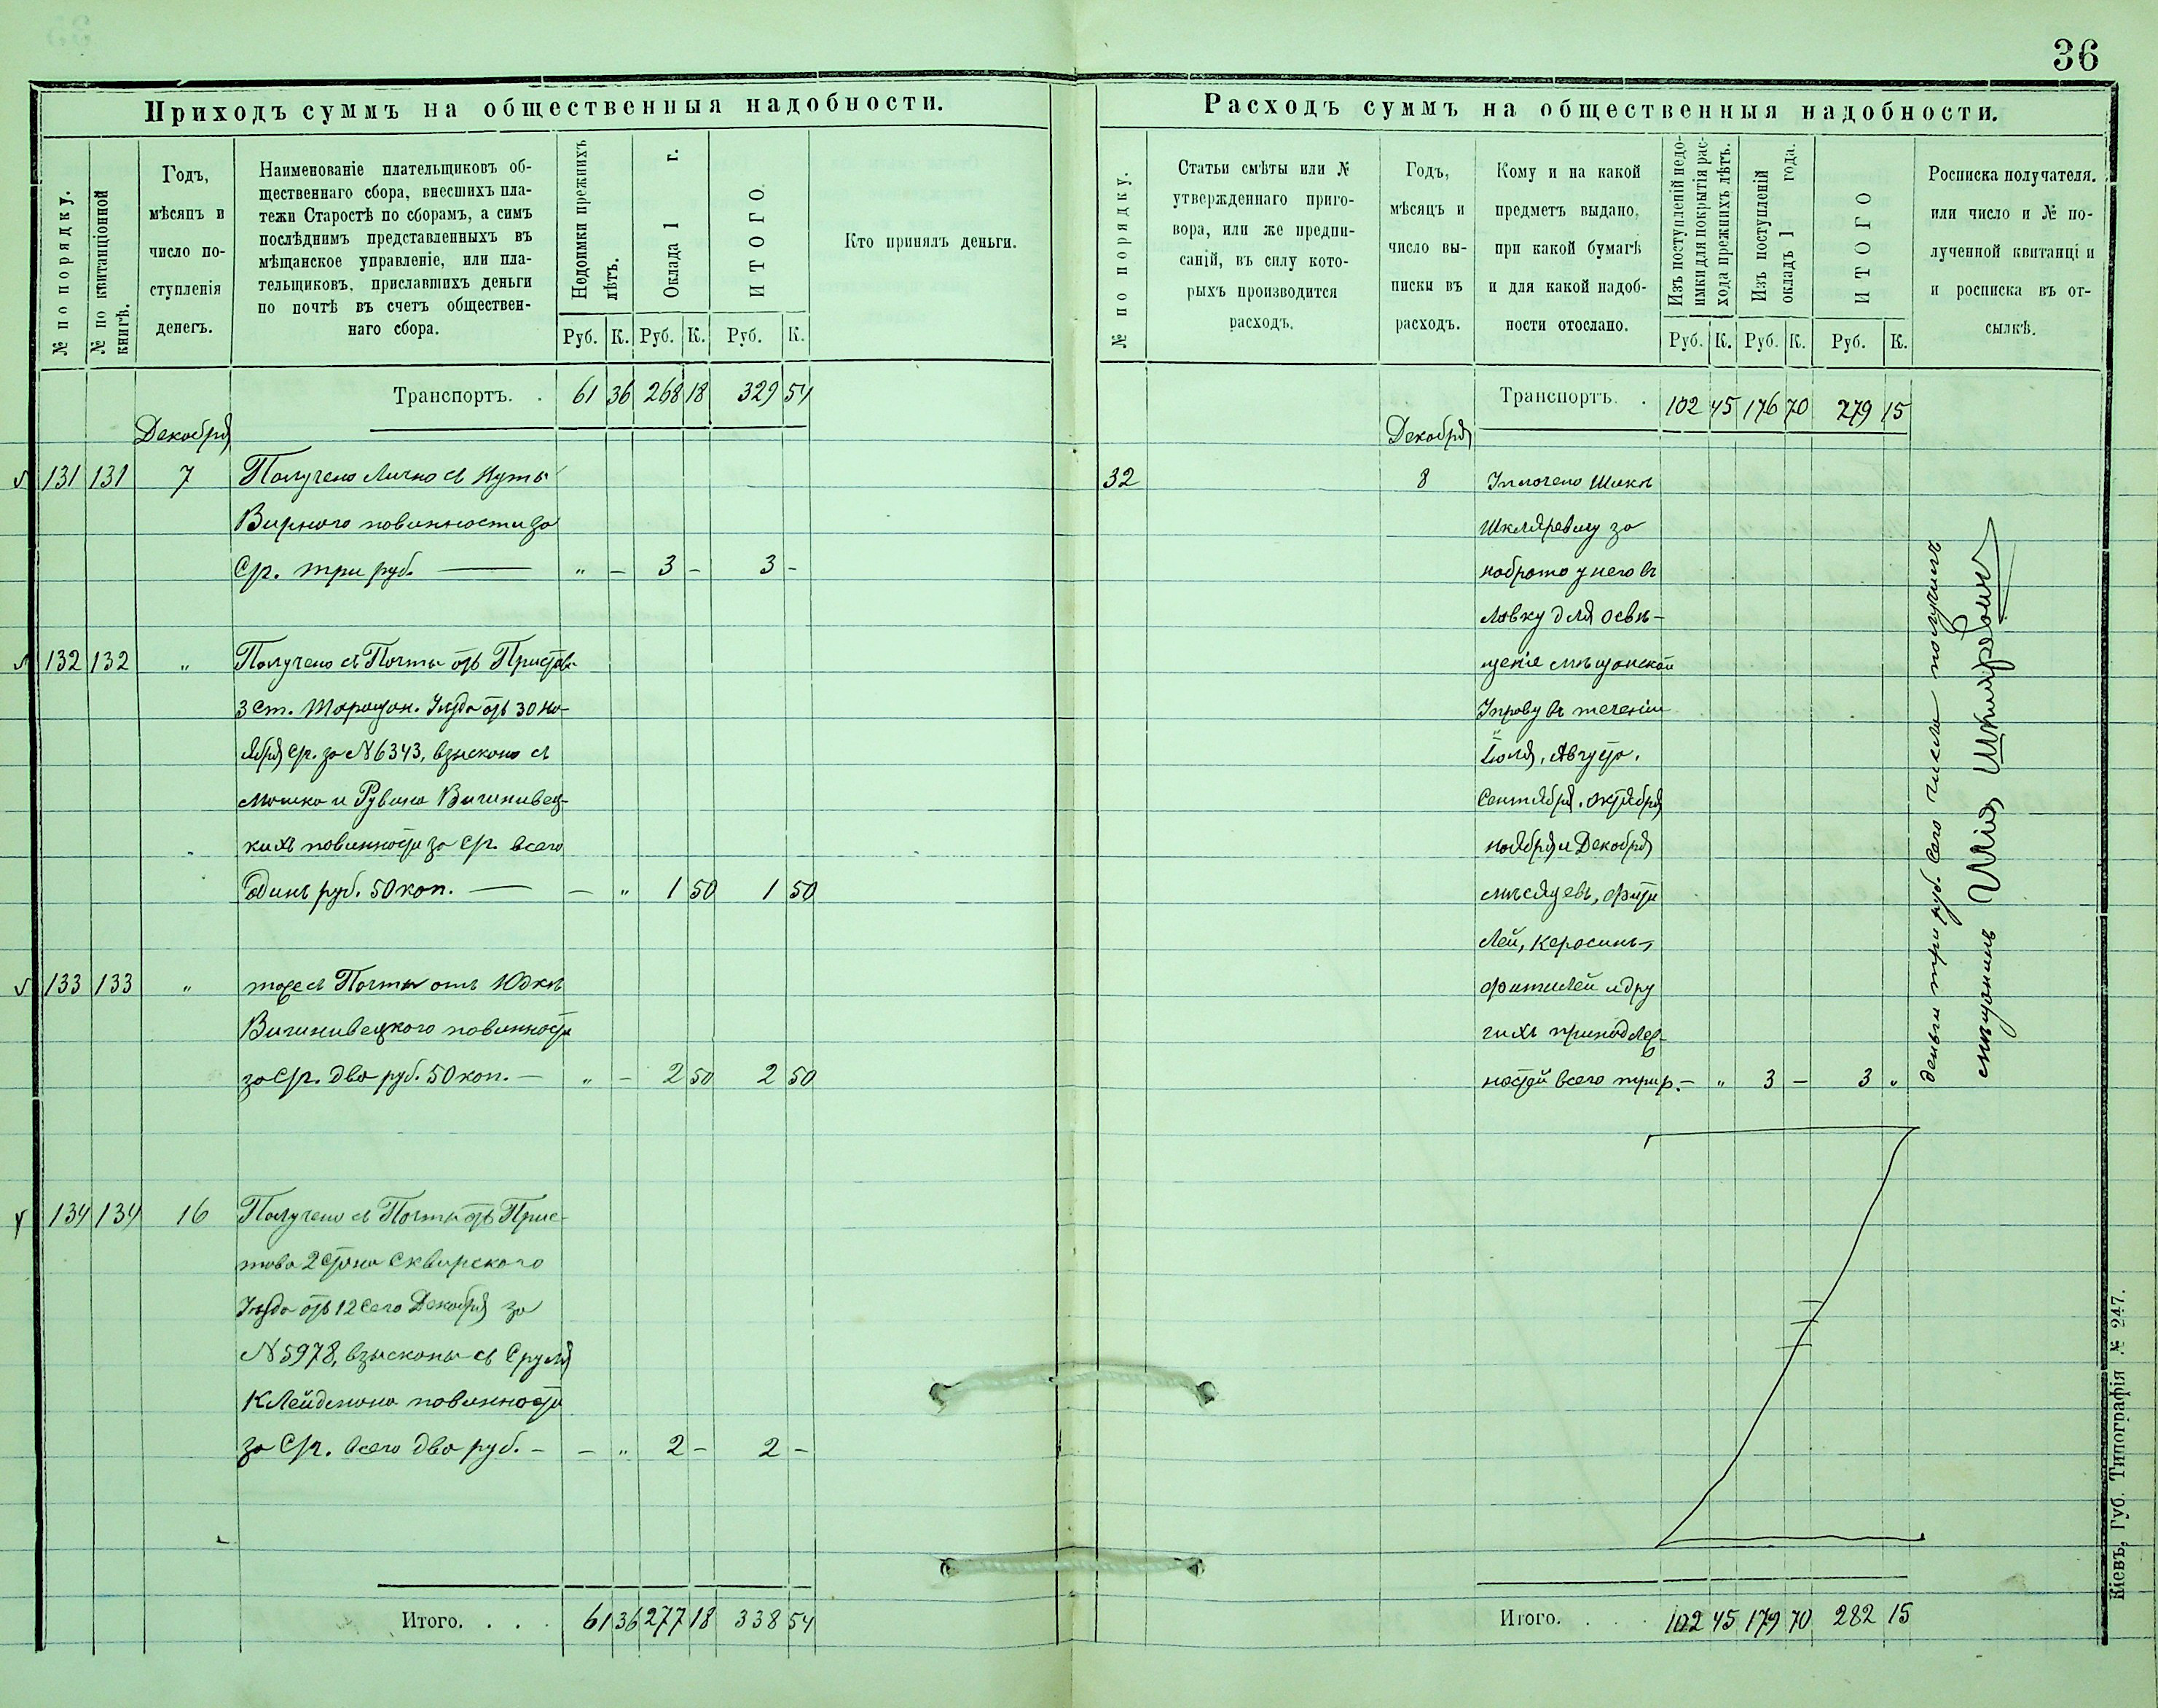 36
Приходъ суммъ на общественныя надобности.
№ по порядку.
№ по квитанціонной
книгѣ.
Годъ,
мѣсяцъ и
число по-
ступленія
денегъ.
Наименованіе плательщиковъ об-
щественнаго сбора, внесшихъ пла-
тежи Старостѣ по сборамъ, а симъ
послѣднимъ представленныхъ въ
мѣщанское управленіе, или пла-
тельщиковъ, приславшихъ деньги
по почтѣ въ счетъ обществен-
наго сбора.
Недоимки прежнихъ
лѣтъ.
Оклада 1 г.
ИТОГО.
Кто принялъ деньги.
Руб. К. Руб. К. Руб. К.
Транспортъ. . 61 36 268 18 329 54
Декабря
131 131 7 Получено лично съ
повинности за
Ср. три руб. — " — 3 — 3 —
132 132 " Получено съ Почты отъ Пристава
3 ст. Таращан. Уѣзда отъ 30 но-
ября ср. за № 6343, взыскано съ
Мошка и Рувина Вишнивец-
кихъ повинности за ср. всего
Одинъ руб. 50 коп. — — " 1 50 1 50
133 133 " тоже съ Почты отъ Юдки
Вишнивецкого повинности
за Ср. два руб. 50 коп. — " — 2 50 2 50
134 134 16 Получено съ Почты отъ Прис-
това 2 Стана Сквирского
Уѣзда отъ 12 Сего Декабря за
№ 5978, взысканы съ Сруля
Клейдмана повинности
за Ср. всего два руб. — — " 2 — 2 —
Итого. . . . 61 36 277 18 338 54
Расходъ суммъ на общественныя надобности.
№ по порядку.
Статьи смѣты или №
утвержденнаго приго-
вора, или же предпи-
саній, въ силу кото-
рыхъ производится
расходъ.
Годъ,
мѣсяцъ и
число вы-
писки въ
расходъ.
Кому и на какой
предметъ выдано,
при какой бумагѣ
и для какой надоб-
ности отослано.
Изъ поступленій недо-
имки для покрытія рас-
хода прежнихъ лѣтъ.
Изъ поступленій
окладъ 1 года.
ИТОГО
Росписка получателя.
или число и № по-
лученной квитанціи
и росписка въ от-
сылкѣ.
Руб. К. Руб. К. Руб. К.
Транспортъ. . 102 45 176 70 279 15
Декабря
32 8 Уплочено Шики
Шкляревичу за
набрато у него въ
лавку для освѣ-
щеніе мѣщанской
Управу въ теченіи
Іюля, Августа,
Сентября, Октября
ноября и Декабря
мѣсяцевъ,
лей, керосинъ,
фитилей и дру
гихъ принадлеж-
ностей всего три р. — " 3 — 3 "
деньги три руб. сего числа получилъ
мѣщанинъ Шия Шкляревич
Итого. . . . 102 45 179 70 282 15
Кіевъ, Губ. Типографія № 247.